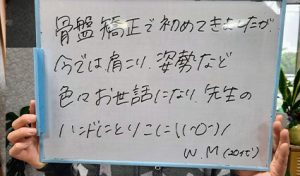 骨盤矯正で初めてきましたが、
今では肩こり、姿勢など
色々お世話になり、先生の
ハンドにとりこに\(^O^)/
W.M(20代)